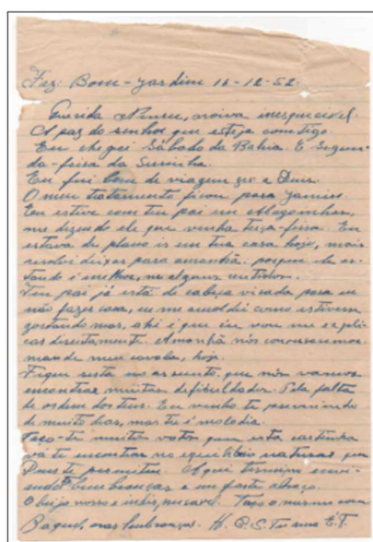 Faz: Bom-jardim 16-12-52.
Querida Nineu, noiva inesquecivel.
A paz do senhor que esteja comtigo.
Eu cheguei Sábado da Bahia. E Segun-
da-feira da Serrinha.
Eu fui bem de viagem graça Deus.
O meu tratamento ficou para Janeiro.
Eu estive com teu pai em Alagoinhas,
me dizendo ele que vinha terça-feira. Eu
estava de plano ir em tua casa hoje, mais
resolvi deixar para amanhã: porque ele es-
tando é melhor, em alguns sentidos.
Teu pai já está de cabeça virada para eu
não fazer casa, eu me amoldei como estivesse
gostando mas, ahi é que eu vou me expli-
car direitamente. Amanhã nós conversaremos
mande meu cavalo, hoje.
Fique certa no assunto, que nós vamos
encontrar muitas dificuldades. Pela falta
de ordem dos teus. Eu venho te prevenindo
de muito dias, mas tu é
Faço-te muitos votos que esta cartinha
vá te encontrar no equilibrio natural que
Deus te permitiu. Aqui termino envi-
ando-te lembranças e um forte abraço.
O beijo nosso é Faço o mesmo com
lembranças.